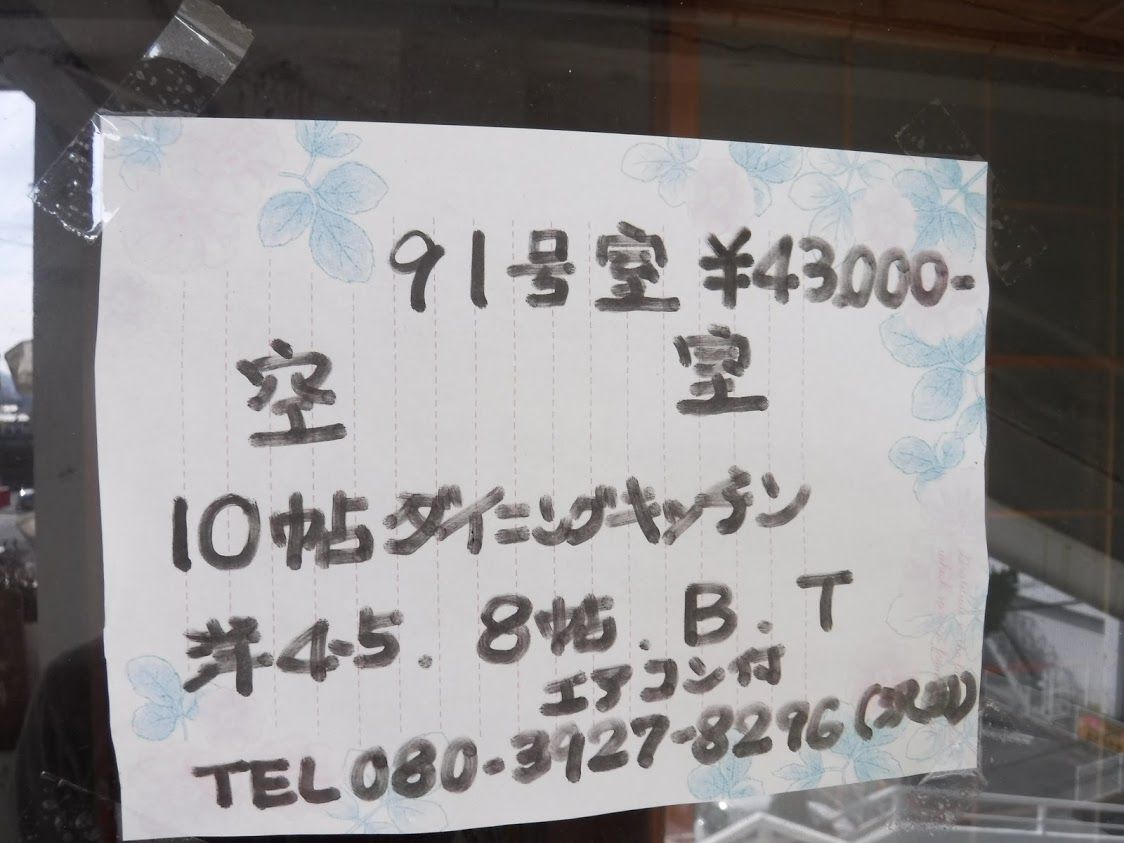 91号室 ¥43,000-
空 室
10帖ダイニングキッチン
洋4.5. 8帖. B. T
エアコン付
TEL080-3927-8296